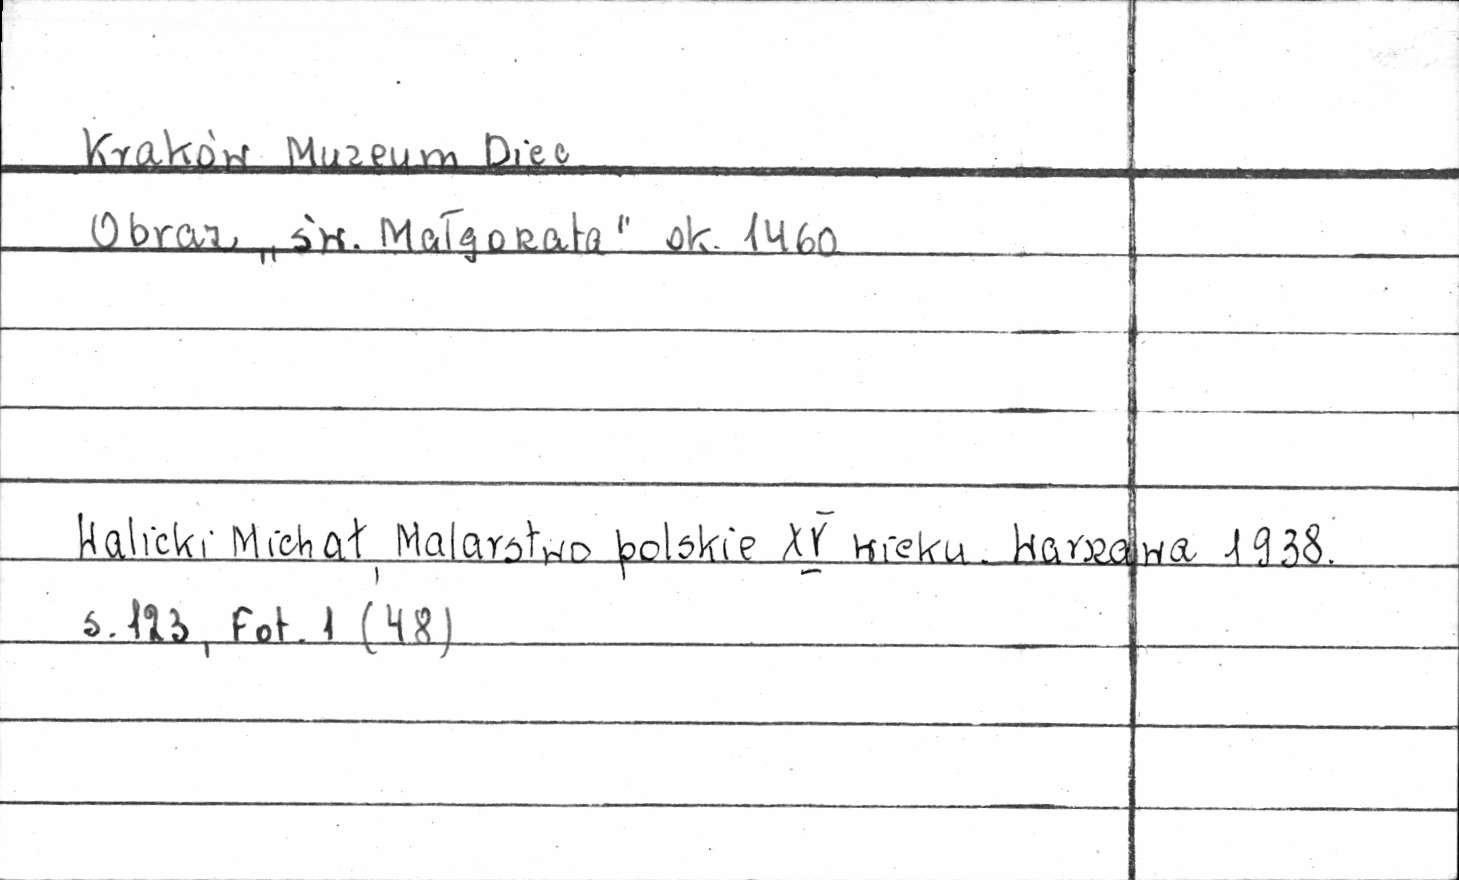 Kraków Muzeum Diec
Obraz „św. Małgorzata" ok. 1460
Walicki Michał, Malarstwo polskie XV wieku. Warszawa 1938.
s. 123, Fot. 1 (48)